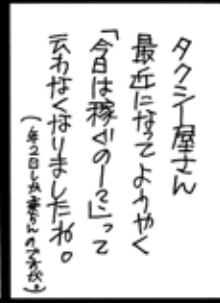 タクシー屋さん
最近になってようやく
「今日は稼ぐのー?」って
云わなくなりましたね。
(年2日しか乗らんのですが)